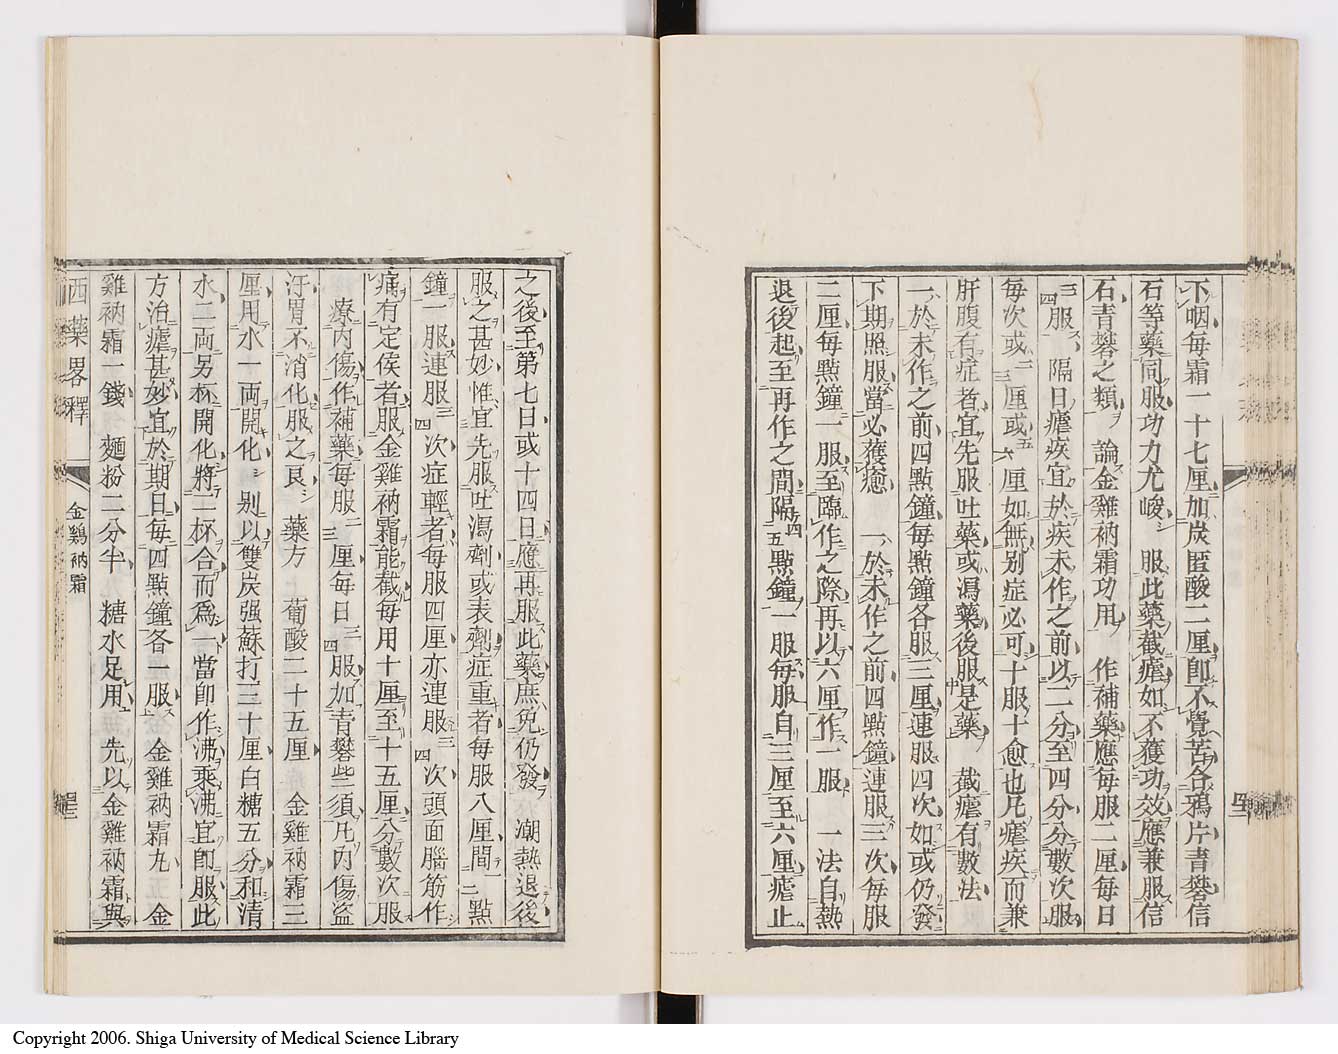 下咽毎霜一十七厘加炭匿酸二厘卽不覺苦合鴉片青礬信
石等藥同服功力尤峻 服此藥截瘧如不獲功效應兼服信
石青礬之類 論金雞衲霜功用 作補藥應毎服二厘毎日
三四服 隔日瘧疾宜於疾未作之前以二分至四分分數次服
毎次或二三厘或五六厘如無別症必可十服十愈也凡瘧疾而兼
肝腹有症者宜先服吐藥或瀉藥後服是藥 截瘧有數法
一於未作之前四點鐘毎點鐘各服三厘連服四次如或仍發
下期照服當必獲癒 一於未作之前四點鐘連服三次毎服
二厘毎點鐘一服至臨作之際再以六厘作一服 一法自熱
退後起至再作之間隔四五點鐘一服毎服自三厘至六厘瘧止
之後至第七日或十四日應再服此藥庶免仍發 潮熱退後
服之甚妙惟宜先服吐瀉劑或表劑症重者毎服八厘間一二點
鐘一服連服三四次症輕者毎服四厘亦連服三四次頭面腦筋作
痛有定侯者服金雞衲霜能截毎用十厘至十五厘分數次服
療內傷作補藥毎服二三厘毎日三四服加青礬些須凡內傷盜
汗胃不消化服之良 藥方 上葡酸二十五厘 金雞衲霜三
厘用水一両開化 別以雙炭强蘇打三十厘白糖五分和清
水二両另杯開化將二杯合而爲一當卽作沸乘沸宜卽服此
方治瘧甚妙宜於期日毎四點鐘各一服 金雞衲霜丸 金
雞衲霜一錢 麵粉二分半 糖水足用 先以金雞衲霜與
西藥畧釋 金鷄衲霜